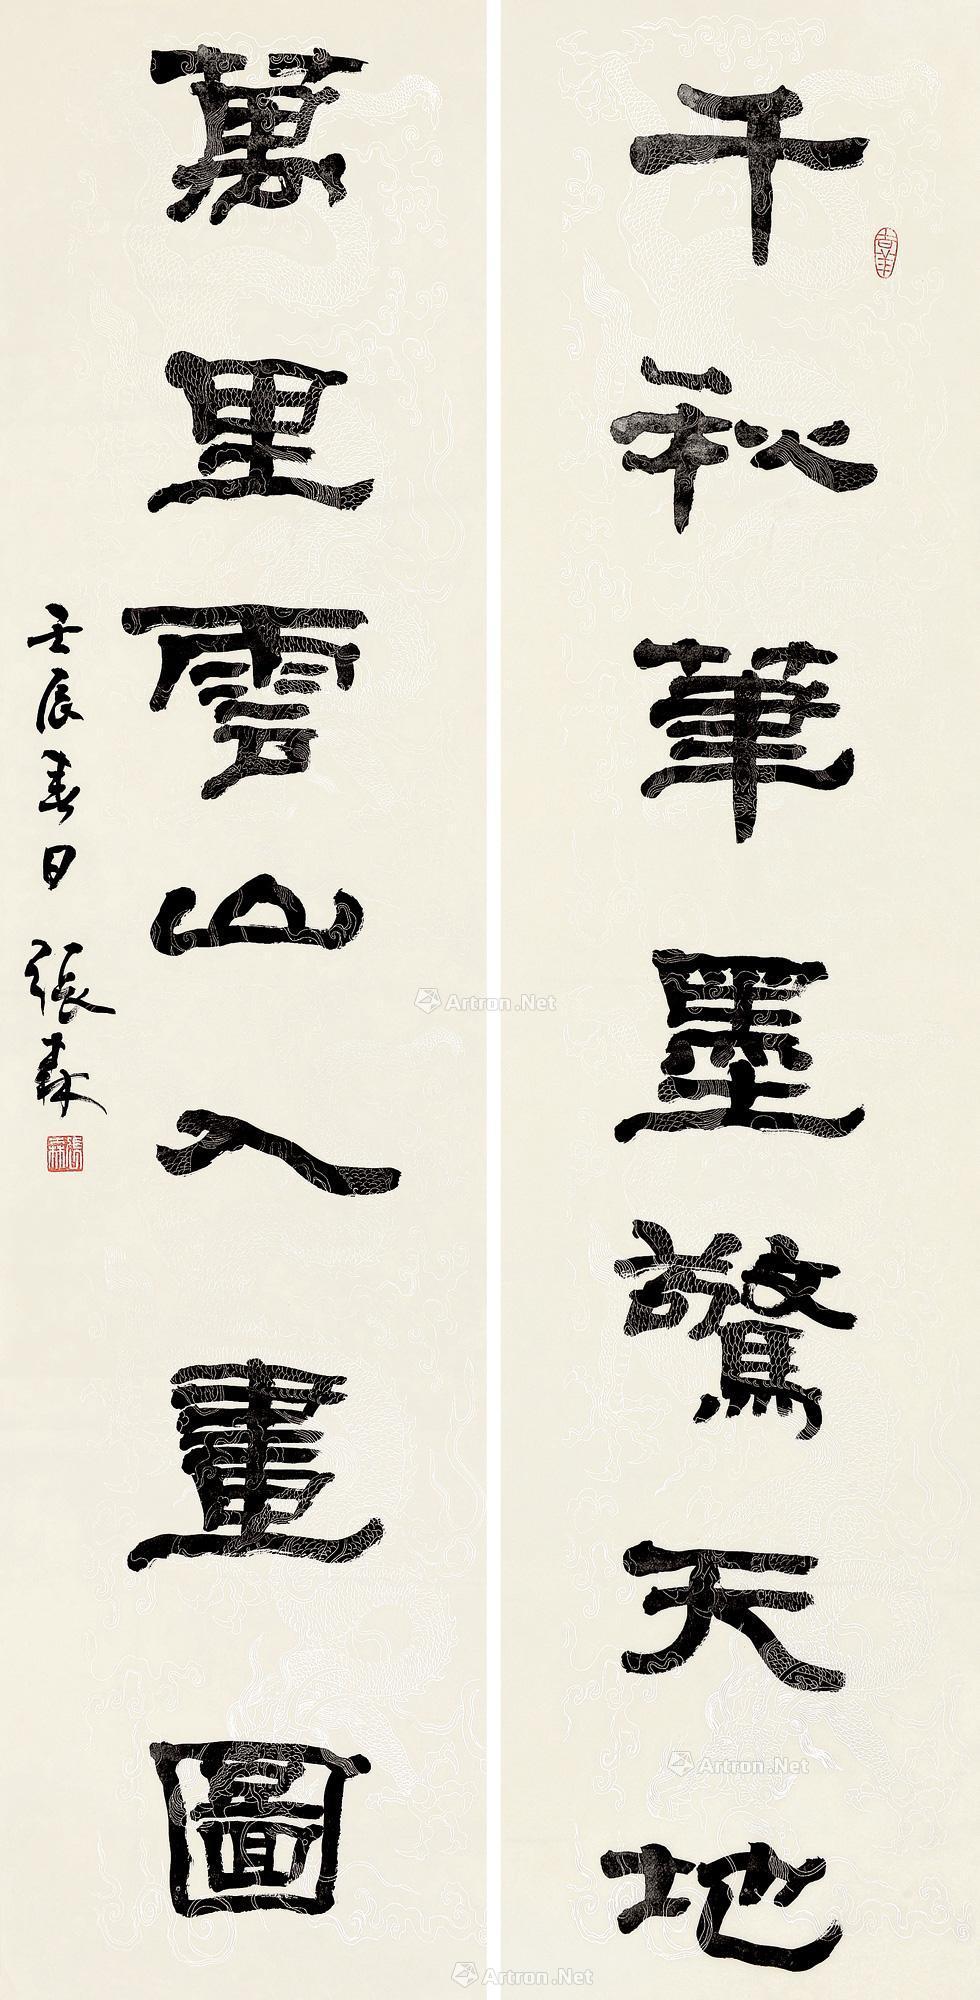 千秋筆墨驚天地
萬里雲山入畫圖
壬辰春日 張森
張森
Artron.Net
Artron.Net
Artron.Net